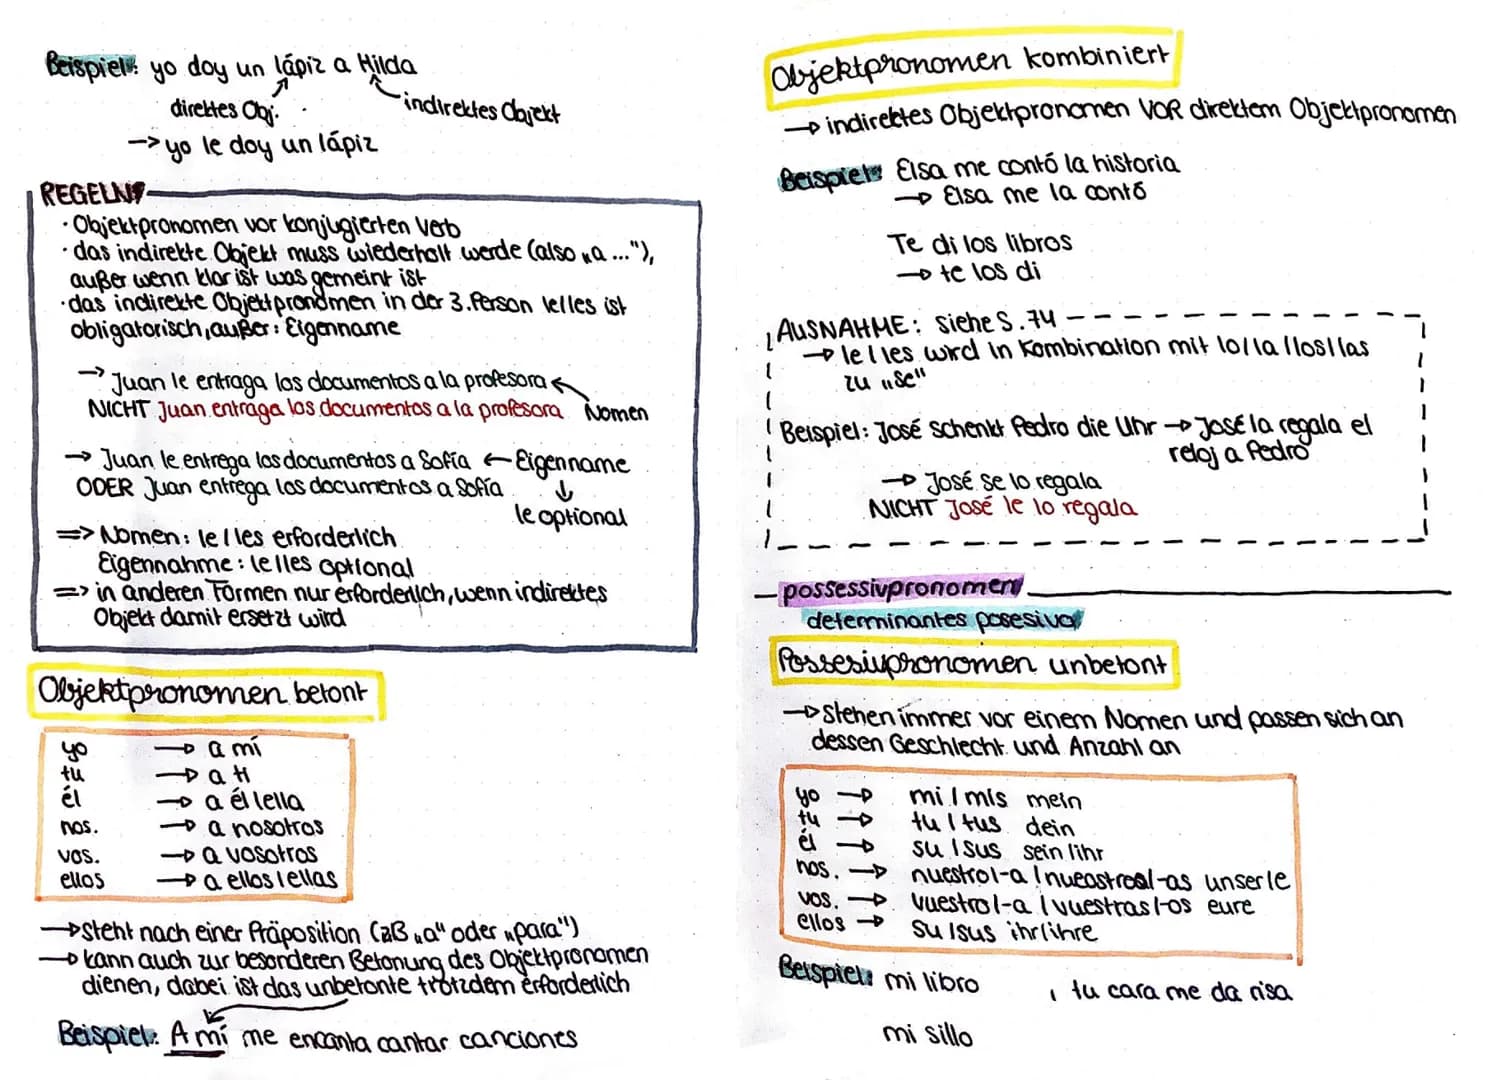 Beispiel: yo doy un lápiz a Hilda
direktes Obj.
indirektes Objekt
-> yo le doy un lápiz
REGELN:
· Objektpronomen vor konjugierten Verb
· das indirekte Objekt muss wiederholt werde (also „a ..."),
außer wenn klar ist was gemeint ist
· das indirekte Objektpronomen in der 3. Person le/les ist
obligatorisch, außer: Eigenname
→ Juan le entraga los documentos a la profesora
NICHT Juan entraga los documentos a la profesora
Nomen
→ Juan le entrega los documentos a Sofía ← Eigenname
ODER Juan entrega los documentos a Sofía
↓
le optional
=> Nomen: le/les erforderlich
Eigennahme: le/les optional
=> in anderen Formen nur erforderlich, wenn indirektes
Objekt damit ersetzt wird
Objektpronomen betont
yo → a mí
tu → a ti
él → a él/ella
nos. → a nosotros
vos. → a vosotros
ellos → a ellos/ellas
→ steht nach einer Präposition (zB „a" oder „para")
→ kann auch zur besonderen Betonung des Objektpronomen
dienen, dabei ist das unbetonte trotzdem erforderlich
Beispiel: A mí me encanta cantar canciones
Objektpronomen kombiniert
→ indirektes Objektpronomen VOR direktem Objektpronomen
Beispiel: Elsa me contó la historia
→ Elsa me la contó
Te di los libros
→ te los di
AUSNAHME: siehe S. 74
→ le/les wird in Kombination mit lo/la/los/las
zu „se"
Beispiel: José schenkt Pedro die Uhr → José la regala el
reloj a Pedro
→ José se lo regala
NICHT José le lo regala
possessivpronomen
determinantes posesivo
Possesivpronomen unbetont
→ stehen immer vor einem Nomen und passen sich an
dessen Geschlecht und Anzahl an
yo → mi/mis mein
tu → tu/tus dein
él → su/sus sein/ihr
nos. → nuestro/-a/nueastroa/-as unser/e
vos. → vuestro/-a/vuestras/-os eure
ellos → su/sus ihr/ihre
Beispiel: mi libro , tu cara me da risa
mi sillo